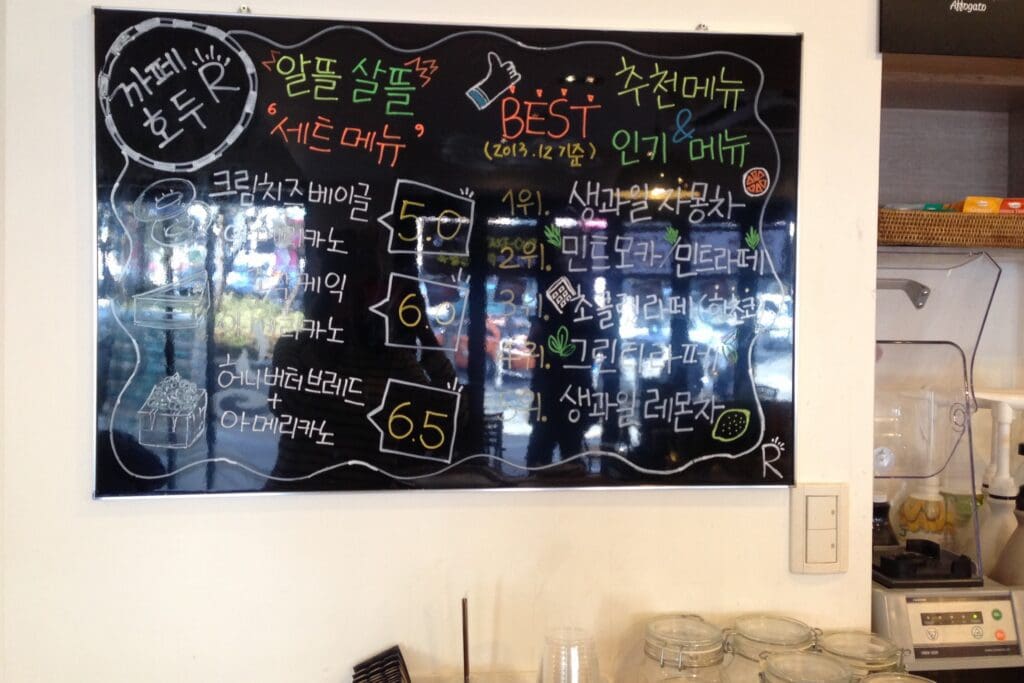 Affogato
까페
호두 R
알뜰 살뜰
'세트메뉴'
크림치즈베이글
아메리카노
5.0
케익
아메리카노
6.0
허니버터브레드
+
아메리카노
6.5
BEST
(2013.12 기준)
추천메뉴
&
인기 메뉴
1위. 생과일 자몽차
2위. 민트모카/민트라떼
3위. 초콜렛라떼 (핫초코)
4위. 그린티라떼
5위. 생과일 레몬차
R